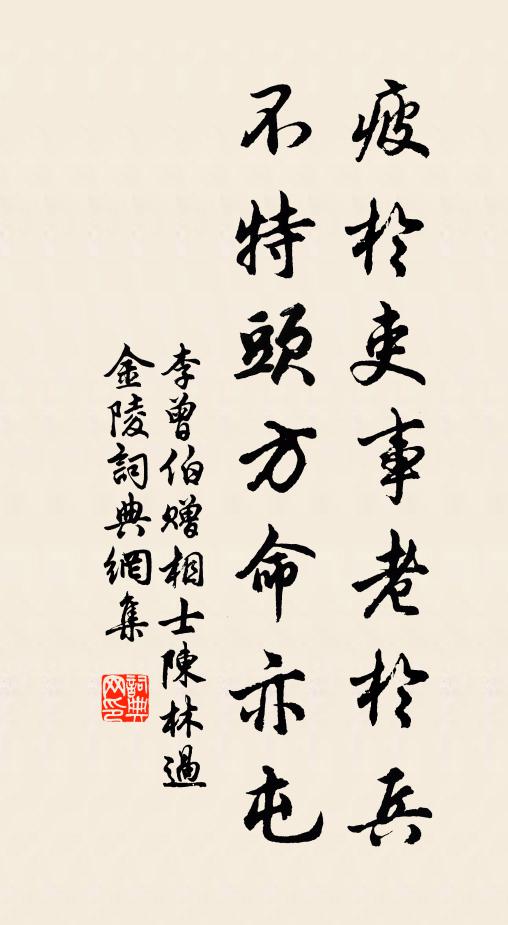 疲於吏事老於兵
不特頭方命亦屯
李曾伯赠相士陳林過
金陵詞典網集
詞典
网印